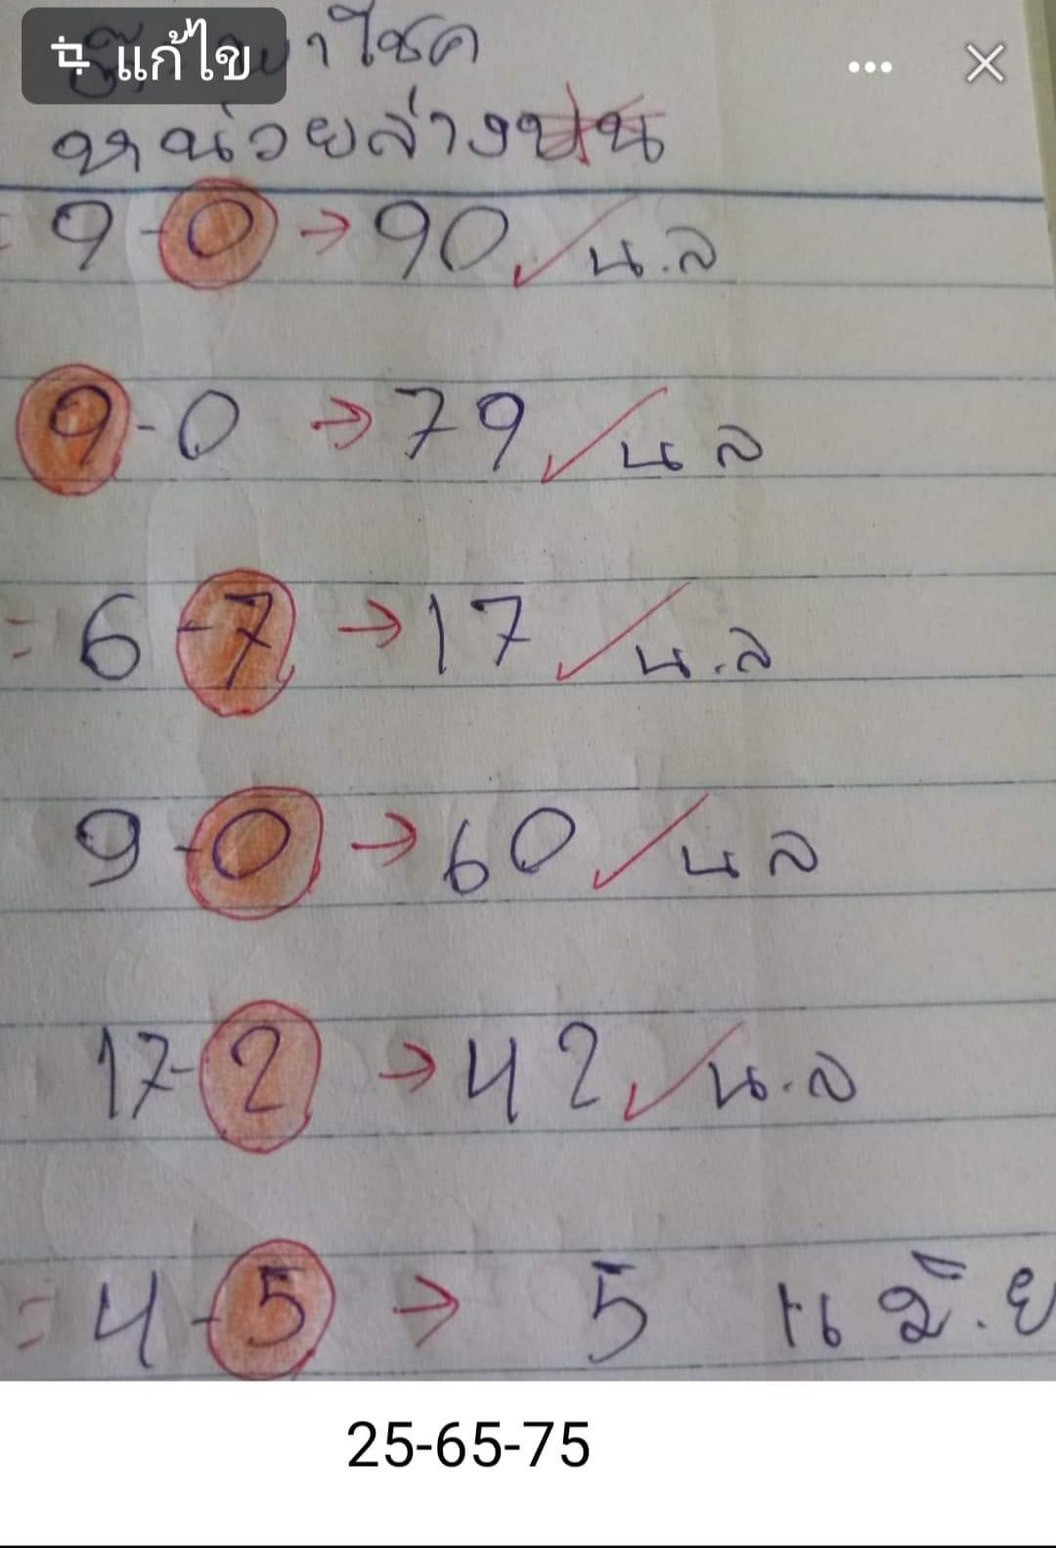 แก้ไข
าโชค
หน่วยล่าง
= 9-0 → 90 น.ล
9-0 → 79 น ล
= 6-7 → 17 น.ล
9-0 → 60 น ล
17-2 → 42 น.ล
= 4-5 → 5
25-65-75